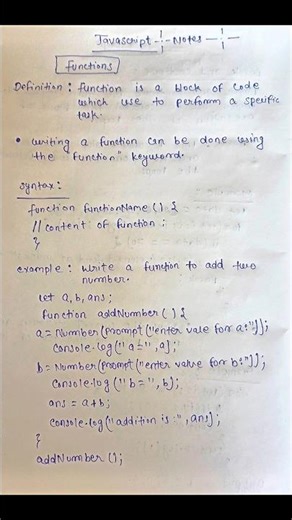 Javascript Notes
functions
Definition : function is a block of code
which use to perform a specific
task.
• writing a function can be done using
the function" keyword.
syntax :
function functionName () {
// content of function :
}
example : write a function to add two
number.
let a, b, ans;
function addNumber () {
a = Number(prompt("enter vale for a:"));
console.log("a=", a);
b = Number(prompt("enter value for b:"));
console.log("b=", b);
ans = a+b;
console.log("addition is -", ans);
}
addNumber ();